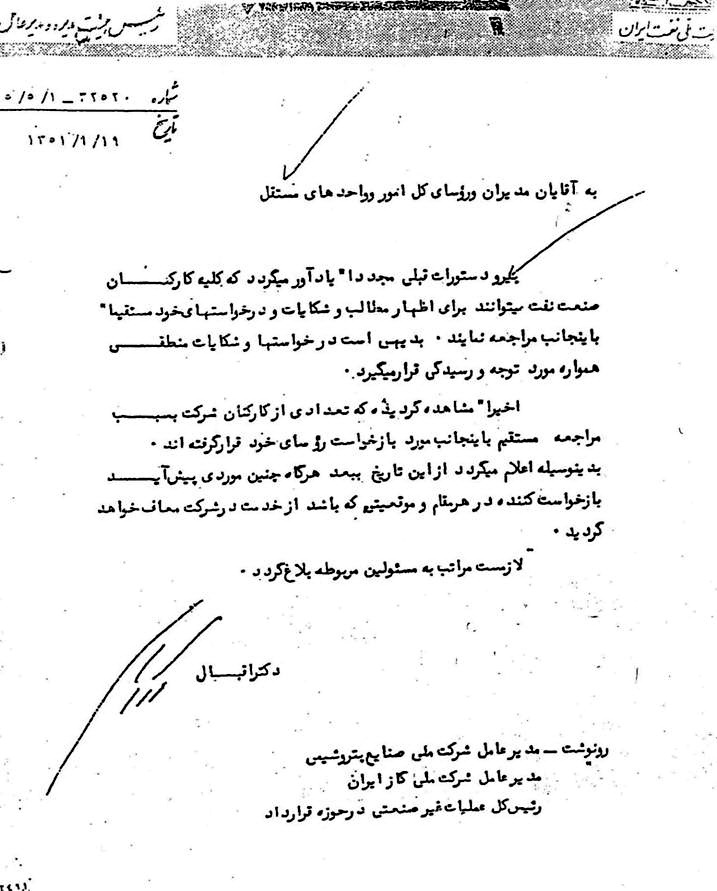 رئیس هیئت مدیره و مدیر عامل
ت ملی نفت ایران
شماره ۳۲۵۲۰ – ۵/۵/۱
تاریخ
۱۳۵۱/۹/۱۹
به آقایان مدیران ورؤسای کل امور وواحد های مستقل
پیرو دستورات قبلی مجددا" یادآور میگردد که کلیه کارکنان
صنعت نفت میتوانند برای اظهار مطالب و شکایات و درخواستهای خود مستقیما"
باینجانب مراجعه نمایند ۰ بدیهی است درخواستها و شکایات منطقی
همواره مورد توجه و رسیدگی قرارمیگیرد ۰
اخیرا" مشاهده گردیده که تعدادی از کارکنان شرکت بسبب
مراجعه مستقیم باینجانب مورد بازخواست رؤسای خود قرارگرفته اند ۰
بدینوسیله اعلام میگردد از این تاریخ ببعد هرگاه چنین موردی پیش آید
بازخواست کننده در هرمقام و موقعیتی که باشد از خدمت درشرکت معاف خواهد
گردید ۰
لازمست مراتب به مسئولین مربوطه بلاغ گردد ۰
دکتر اقبال
رونوشت – مدیر عامل شرکت ملی صنایع پتروشیمی
مدیر عامل شرکت ملی گاز ایران
رئیس کل عملیات غیر صنعتی درحوزه قرارداد